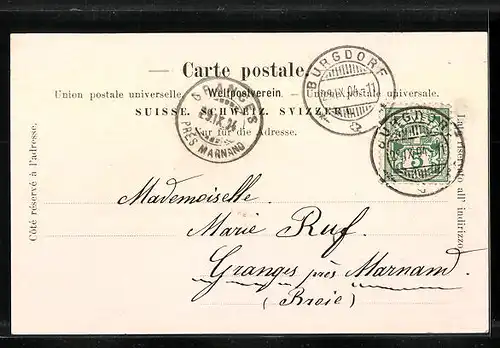 Carte postale.
Union postale universelle. Weltpostverein. Unione postale universale.
SUISSE. SCHWEIZ. SVIZZERA.
Nur für die Adresse.
Côté réservé à l'adresse.
Lato riservato all' indirizzo.
BURGDORF
GRANGES
PRÈS MARNAND
BURGDORF
5
Mademoiselle
Marie Ruf.
Granges près Marnand
(Broie)